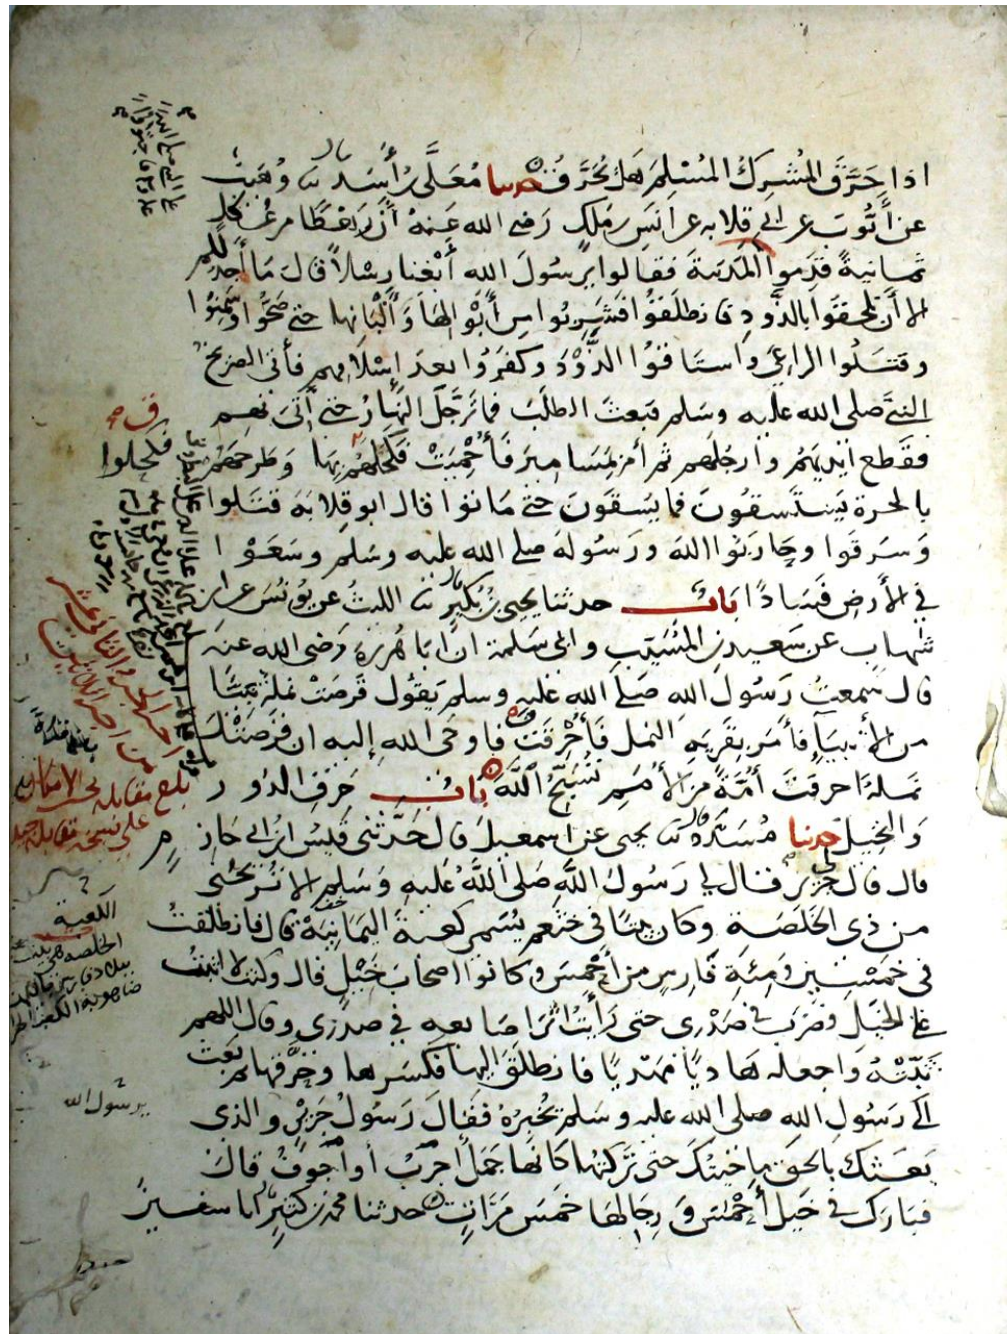 اذا حَرَّقَ المُشرِكُ المُسْلِمَ هَلْ يُحَرَّقُ حدثنا مُعَلَّى بنُ أَسَدٍ نا وُهَيْبٌ
عن أَيُّوبَ عن ابي قلابه عن انَسِ بنِ مَلِكٍ رَضي الله عَنهُ أنَّ رَهْطًا من عُكلٍ
ثمانيةً قدِموا المَدينَةَ فقالوا يا رسُولَ الله أَبْغِنا رِسْلاً قال مَا أَجِدُ لكم
الا أَن تَلحَقوا بالذَّوْدِ فانطلَقوا فشَرِبُوا من أَبْوَالهَا وَأَلْبَانِها حتى صَحُّوا وسَمِنُوا
وقتَلُوا الراعيَ واستاقوُا الذَّوْدَ وكفَرُوا بعدَ إسْلَامِهم فأتى الصريخُ
النبيَّ صلى الله عليه وسَلم فبَعثَ الطلَبَ فما تَرَجَّلَ النَّهارُ حتى أُتيَ بهم
فقَطع ايْدِيَهُمْ وارجُلَهم ثم أمرَ بمَسَاميرَ فَأُحْمِيَتْ فكَحلَهُمْ بِهَا وَطرحَهُمْ
بالحَرة يَستَسقُونَ فما يُسقَونَ حتى مَاتوا قال ابو قِلابَةَ قتَلوا
وَسرَقوا وحَارَبوُا اللهَ ورَسُولَهُ صلى الله عليه وسَلم وسَعَوْا
في الأَرضِ فَسَادًا بَابٌ حدثنا يحيى بنُ بُكَيرٍ نا الليثُ عن يُونُسَ عن ابن
شهابٍ عن سَعِيدِ بنِ المُسَيّبِ وابي سَلمة ان ابا هُريرةَ رضى الله عنه
قال سَمعتُ رَسُولَ الله صَلى الله عَليه وسلم يَقُول قَرصَتْ نملةٌ نبيًّا
من الأنبيَآءِ فأمَر بقَريةِ النملِ فَأُحْرِقَتْ فاوحَى الله إليه ان قَرَصَتْكَ
نملةٌ احرقتَ أُمَّةً منَ الأُمَمِ تُسَبِّحُ اللَّهَ بَابُ حَرقِ الدُورِ
وَالنخيلِ حدثنا مُسَدَّدٌ نا يحيى عن اسمعيلَ قال حَدَّثني قيسُ بنُ ابي حَازمٍ
قال قال لي جَريرٌ قال لي رَسولُ اللَّهِ صَلى اللَّهُ عَليه وَسَلم الا تُريحُني
من ذي الخَلَصَة وكان بيتًا في خثعم يُسَمى كعبةَ اليَمَانِيَة قال فانطلقتُ
في خمسين ومِئةِ فَارِسٍ من أَحْمسَ وكانوا اصحابَ خَيْلٍ قال وكنت لا اثبتُ
على الخيلِ فضرَبَ في صَدْرِى حتى رَأَيتُ اثَرَ اصَابعه في صَدرِي وقال اللهم
ثَبِّتْهُ وَاجعله هَاديًا مَهديًا فانطلقَ إليها فكسَرها وحَرَّقها ثم بَعَثَ
الى رَسُولِ الله صلى الله عليه وسَلم يُخبِرُهُ فقَالَ رَسُولُ جَريرٍ والذي
بَعثك بالحَق ما جئتُكَ حتى تَركتُها كَانَّها جَمَلٌ اجرَبُ أو أَجوفُ قالَ
فبَارَكَ في خَيلِ أَحْمسَ وَرِجَالِهَا خَمسَ مَرّاتٍ حدثنا محمد بنُ كثيرٍ انا سفين
فكحلوا
اخر الجزء الثانى عشر
من اجزا ثلاثين
بلغ مقابله
الكعبة
يرسُول الله